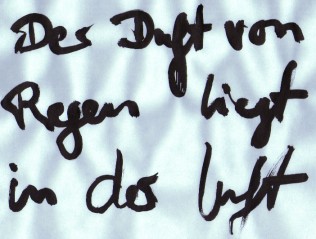 Der Duft von
Regen liegt
in der Luft